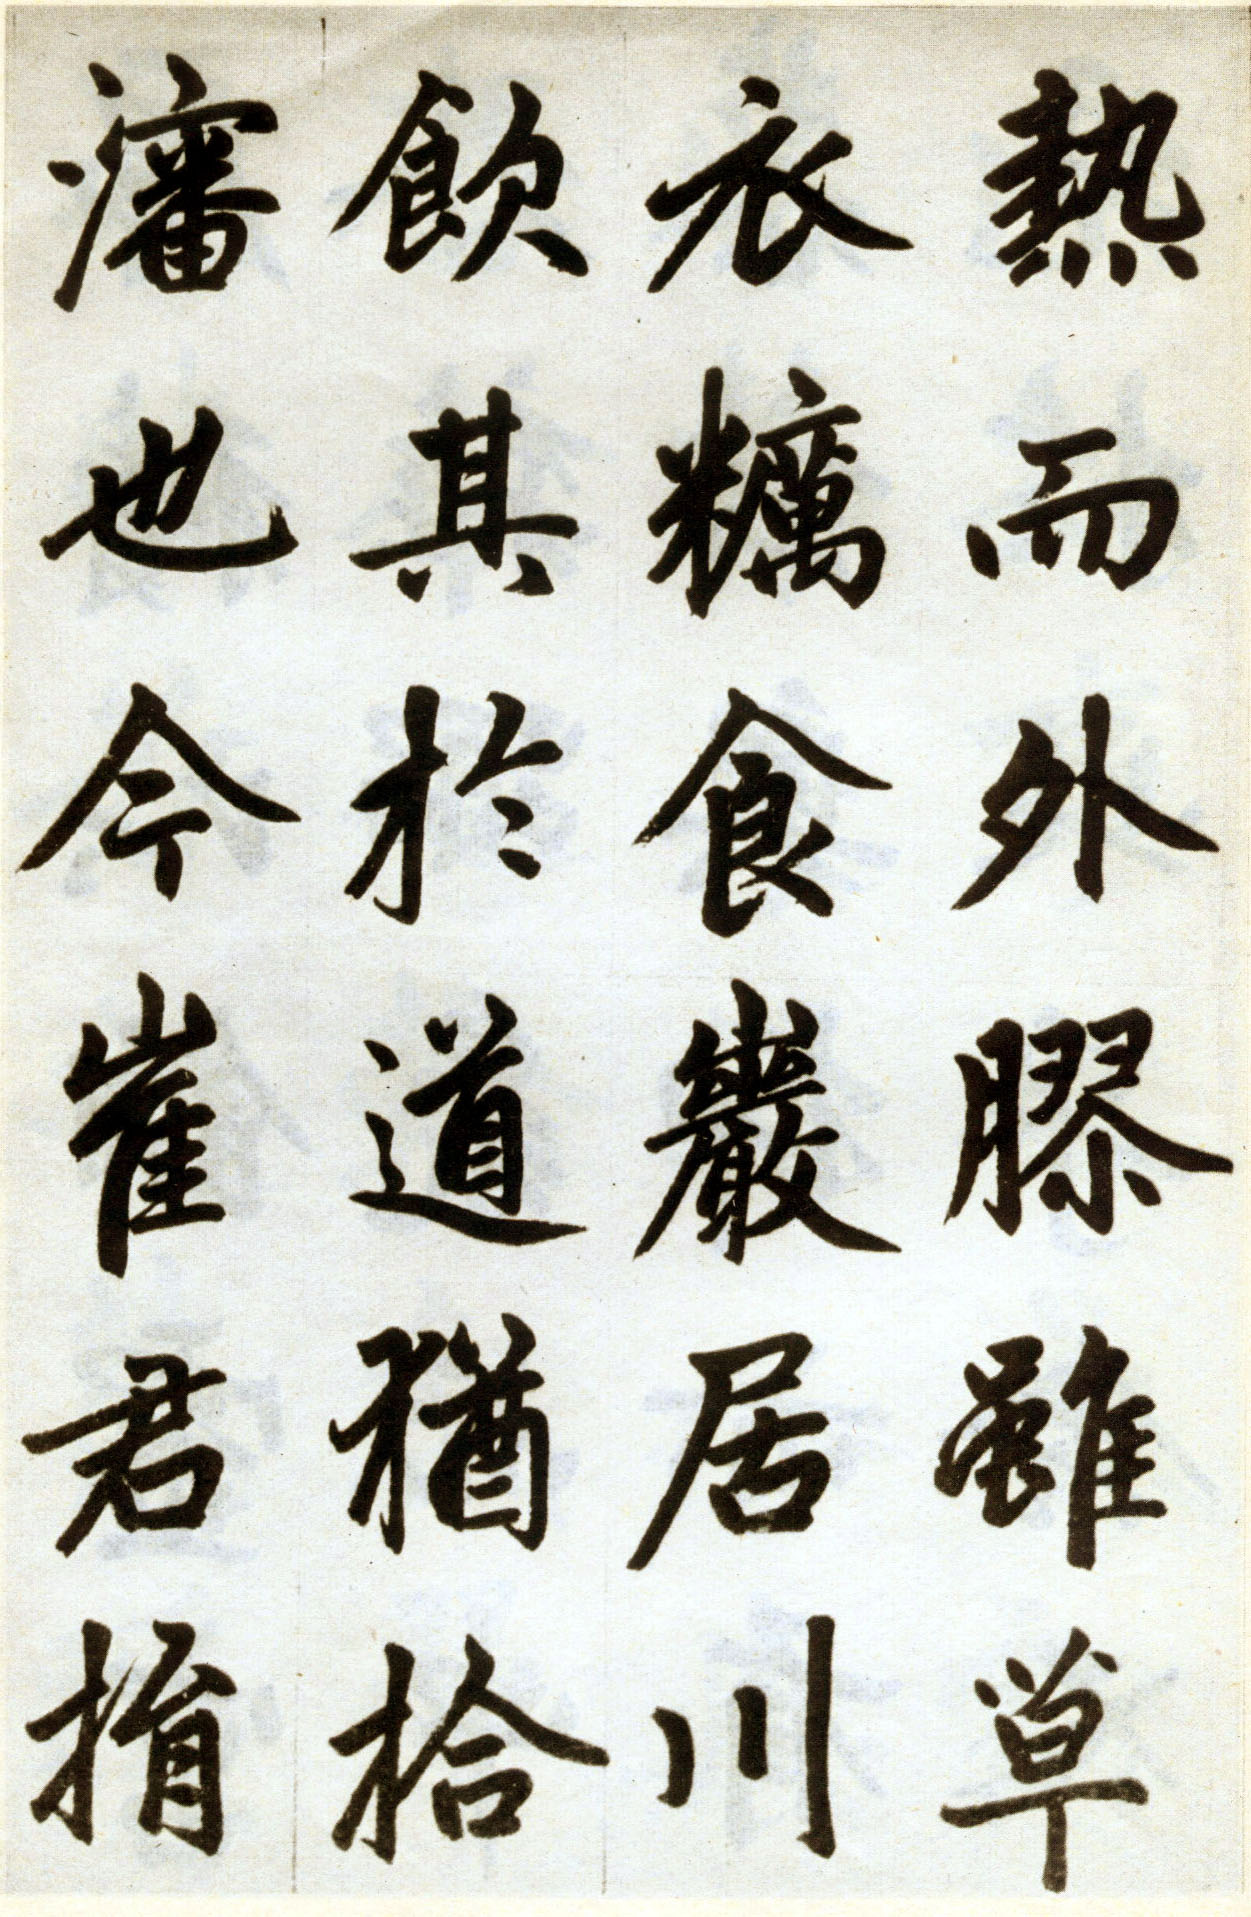 熱而外膠雖草
衣糲食巖居川
飲其於道猶拾
瀋也今崔君捐